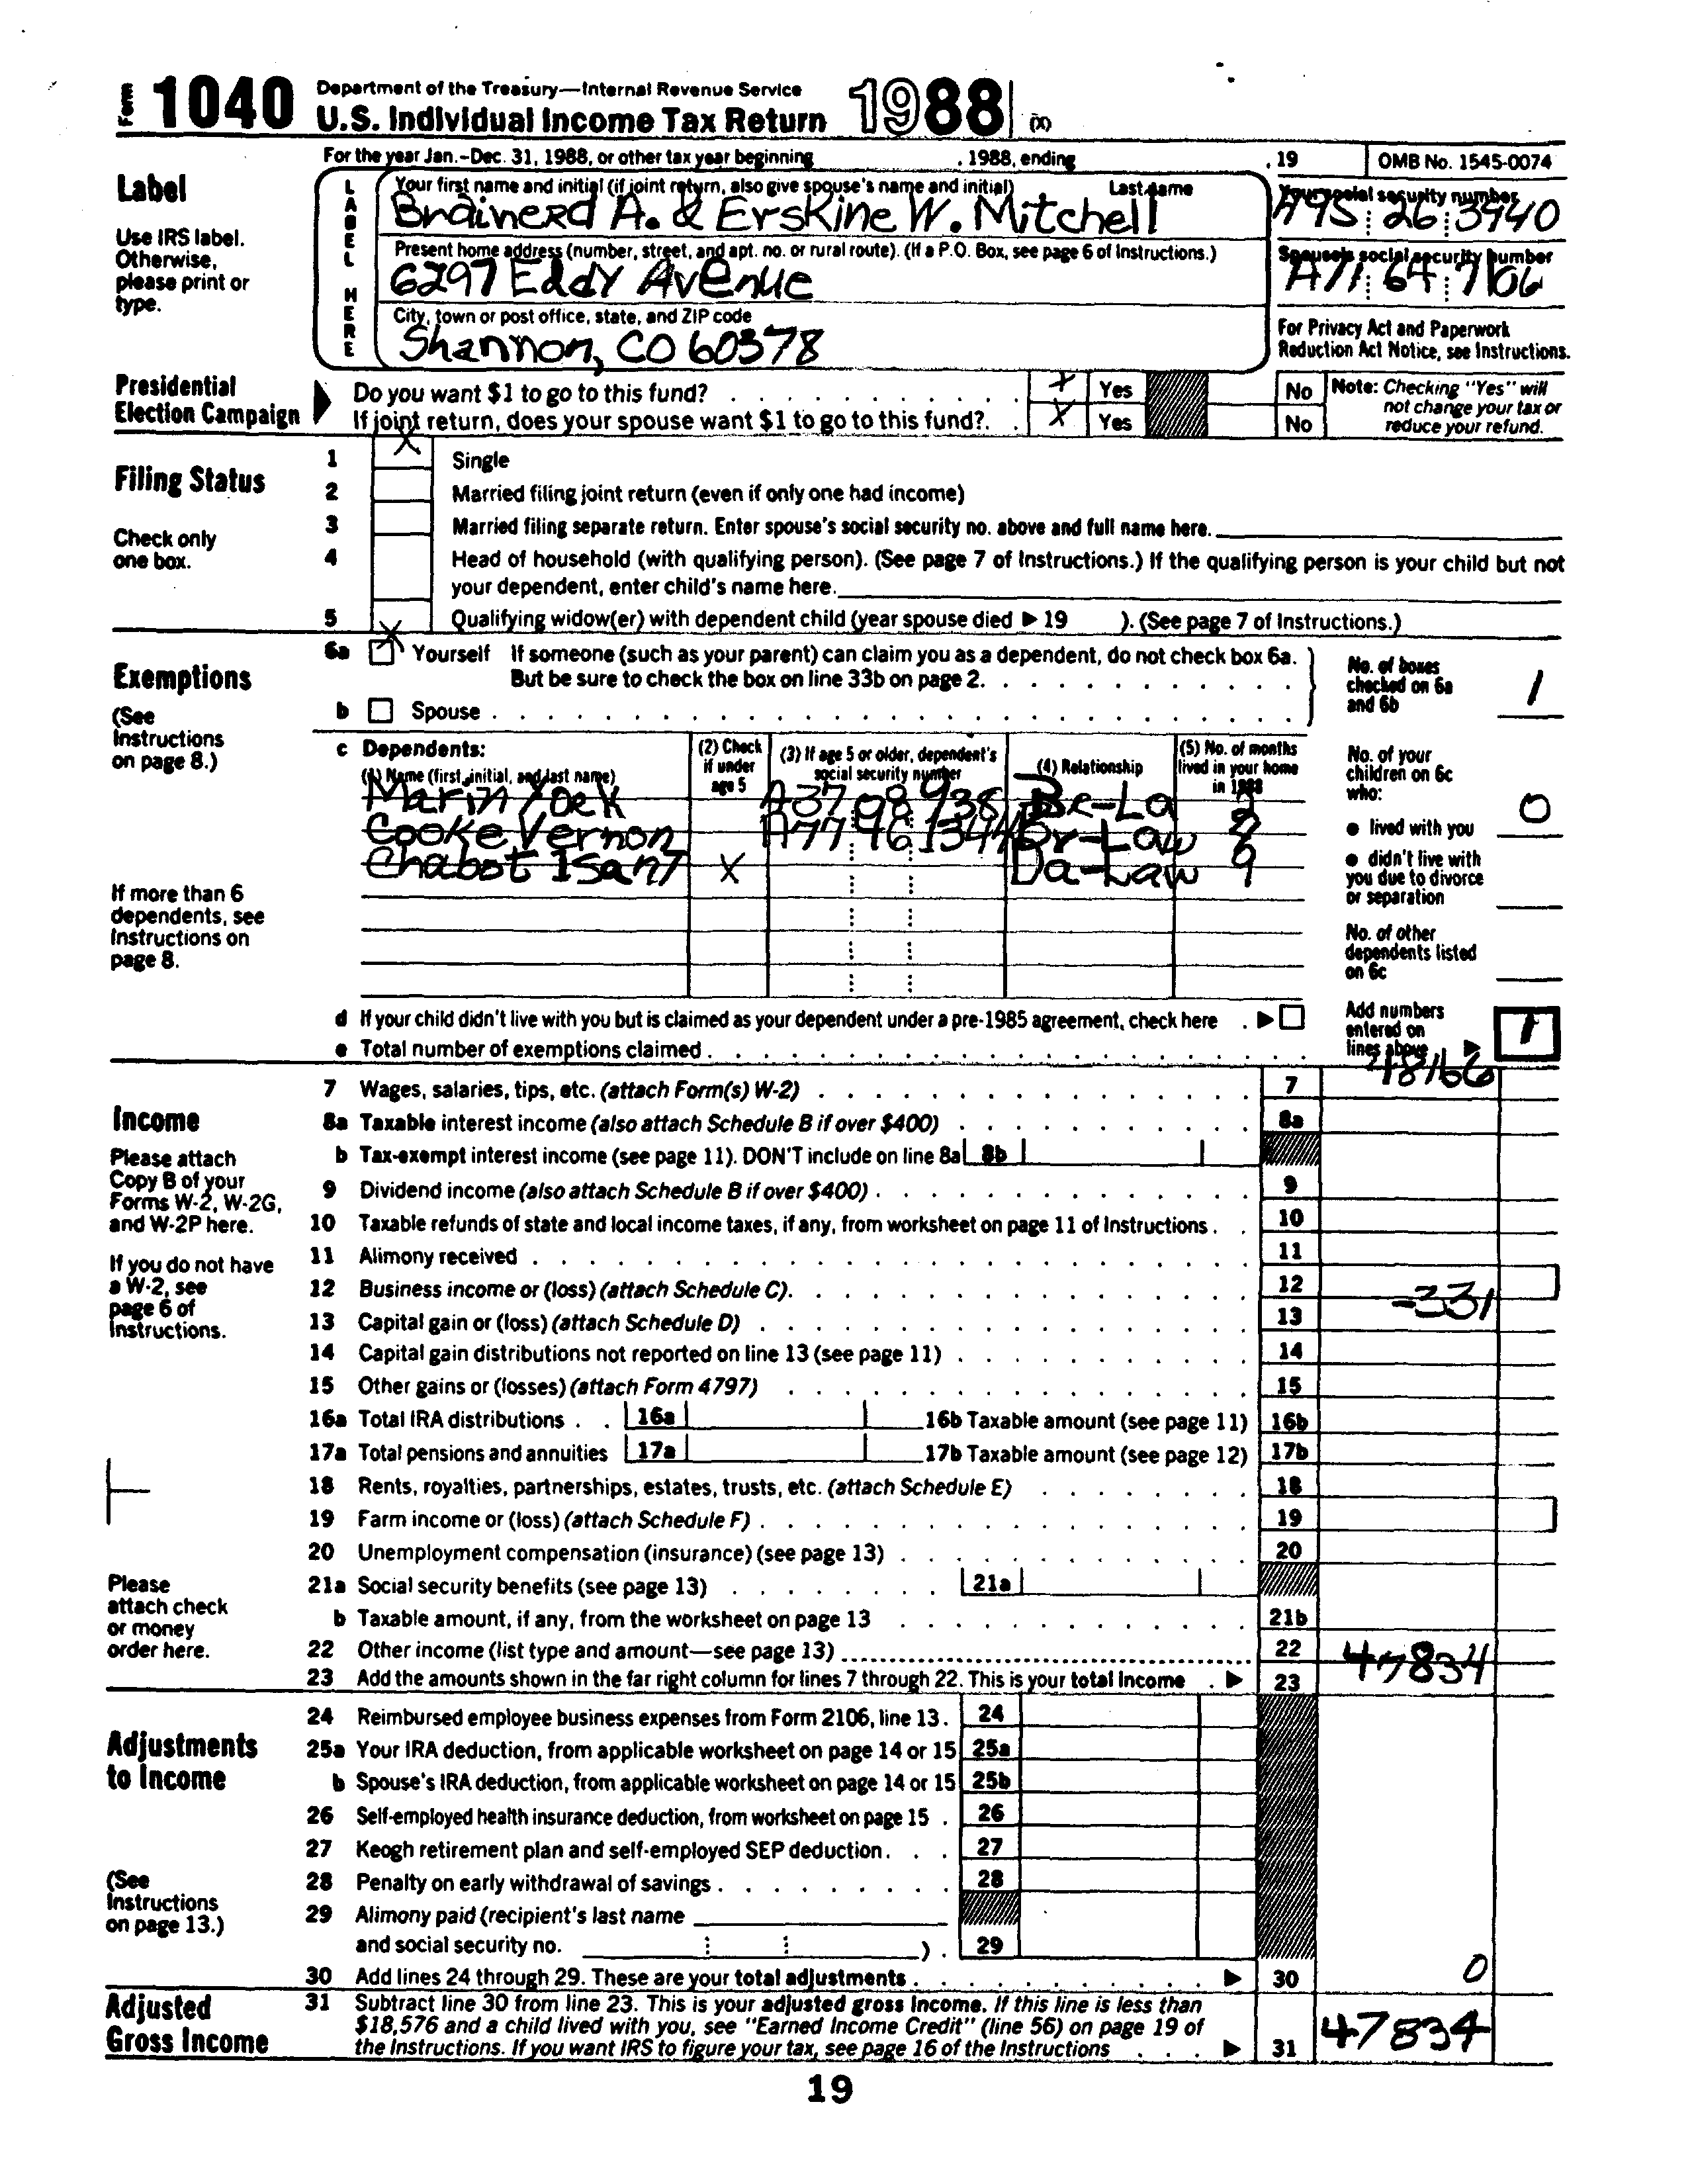 Form 1040 Department of the Treasury—Internal Revenue Service
U.S. Individual Income Tax Return 1988 (X)
For the year Jan.-Dec. 31, 1988, or other tax year beginning , 1988, ending , 19 OMB No. 1545-0074
Label
Use IRS label. Otherwise, please print or type.
LABEL HERE
Your first name and initial (if joint return, also give spouse's name and initial) Last name
Brainerd A. & Erskine W. Mitchell
Your social security number
A95 26 3940
Present home address (number, street, and apt. no. or rural route). (If a P.O. Box, see page 6 of Instructions.)
6297 Eddy Avenue
Spouse's social security number
A71 64 7106
City, town or post office, state, and ZIP code
Shannon, CO 60378
For Privacy Act and Paperwork
Reduction Act Notice, see Instructions.
Presidential
Election Campaign
Do you want $1 to go to this fund? X Yes No
If joint return, does your spouse want $1 to go to this fund? X Yes No
Note: Checking "Yes" will
not change your tax or
reduce your refund.
Filing Status
Check only
one box.
X
1 Single
2 Married filing joint return (even if only one had income)
3 Married filing separate return. Enter spouse's social security no. above and full name here.
4 Head of household (with qualifying person). (See page 7 of Instructions.) If the qualifying person is your child but not
your dependent, enter child's name here.
5 Qualifying widow(er) with dependent child (year spouse died ▶ 19 ). (See page 7 of Instructions.)
Exemptions
(See
Instructions
on page 8.)
X
6a Yourself If someone (such as your parent) can claim you as a dependent, do not check box 6a.
But be sure to check the box on line 33b on page 2.
b Spouse
No. of boxes
checked on 6a
and 6b 1
c Dependents:
(1) Name (first, initial, and last name)
(2) Check
if under
age 5
(3) If age 5 or older, dependent's
social security number
(4) Relationship
(5) No. of months
lived in your home
in 1988
Marin York A37 08 938 Br-La 9
Cooke Vernon A77 96 1344 Br-Law 9
Chabot Isant X Da-Law 9
If more than 6
dependents, see
Instructions on
page 8.
No. of your
children on 6c
who:
● lived with you 0
● didn't live with
you due to divorce
or separation
No. of other
dependents listed
on 6c
d If your child didn't live with you but is claimed as your dependent under a pre-1985 agreement, check here ▶
e Total number of exemptions claimed
Add numbers
entered on
lines above ▶ 1
Income
Please attach
Copy B of your
Forms W-2, W-2G,
and W-2P here.
If you do not have
a W-2, see
page 6 of
Instructions.
48166
7 Wages, salaries, tips, etc. (attach Form(s) W-2) 7
8a Taxable interest income (also attach Schedule B if over $400) 8a
b Tax-exempt interest income (see page 11). DON'T include on line 8a 8b
9 Dividend income (also attach Schedule B if over $400) 9
10 Taxable refunds of state and local income taxes, if any, from worksheet on page 11 of Instructions 10
11 Alimony received 11
12 Business income or (loss) (attach Schedule C) 12
-331
13 Capital gain or (loss) (attach Schedule D) 13
14 Capital gain distributions not reported on line 13 (see page 11) 14
15 Other gains or (losses) (attach Form 4797) 15
16a Total IRA distributions 16a 16b Taxable amount (see page 11) 16b
17a Total pensions and annuities 17a 17b Taxable amount (see page 12) 17b
18 Rents, royalties, partnerships, estates, trusts, etc. (attach Schedule E) 18
19 Farm income or (loss) (attach Schedule F) 19
20 Unemployment compensation (insurance) (see page 13) 20
Please
attach check
or money
order here.
21a Social security benefits (see page 13) 21a
b Taxable amount, if any, from the worksheet on page 13 21b
22 Other income (list type and amount—see page 13) 22
47834
23 Add the amounts shown in the far right column for lines 7 through 22. This is your total income ▶ 23
Adjustments
to Income
(See
Instructions
on page 13.)
24 Reimbursed employee business expenses from Form 2106, line 13. 24
25a Your IRA deduction, from applicable worksheet on page 14 or 15 25a
b Spouse's IRA deduction, from applicable worksheet on page 14 or 15 25b
26 Self-employed health insurance deduction, from worksheet on page 15 26
27 Keogh retirement plan and self-employed SEP deduction 27
28 Penalty on early withdrawal of savings 28
29 Alimony paid (recipient's last name
and social security no. ) 29
30 Add lines 24 through 29. These are your total adjustments ▶ 30 0
Adjusted
Gross Income
31 Subtract line 30 from line 23. This is your adjusted gross income. If this line is less than
$18,576 and a child lived with you, see "Earned Income Credit" (line 56) on page 19 of
the Instructions. If you want IRS to figure your tax, see page 16 of the Instructions ▶ 31 47834
19